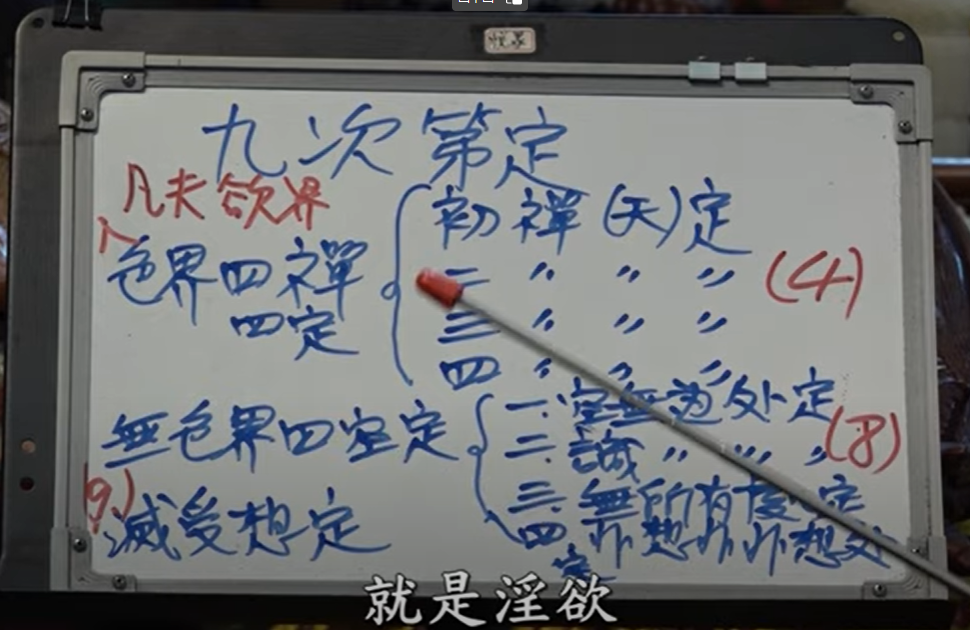 九次第定
凡夫欲界
色界四禪
四定
初禪(天)定
二 〃 〃 〃
三 〃 〃 〃
四 〃 〃 〃
(4)
無色界四空定
一.空無边处定
二.識 〃 〃 〃
三.無所有处定
四.非想非非想处
定
(8)
(9)
滅受想定
就是淫欲